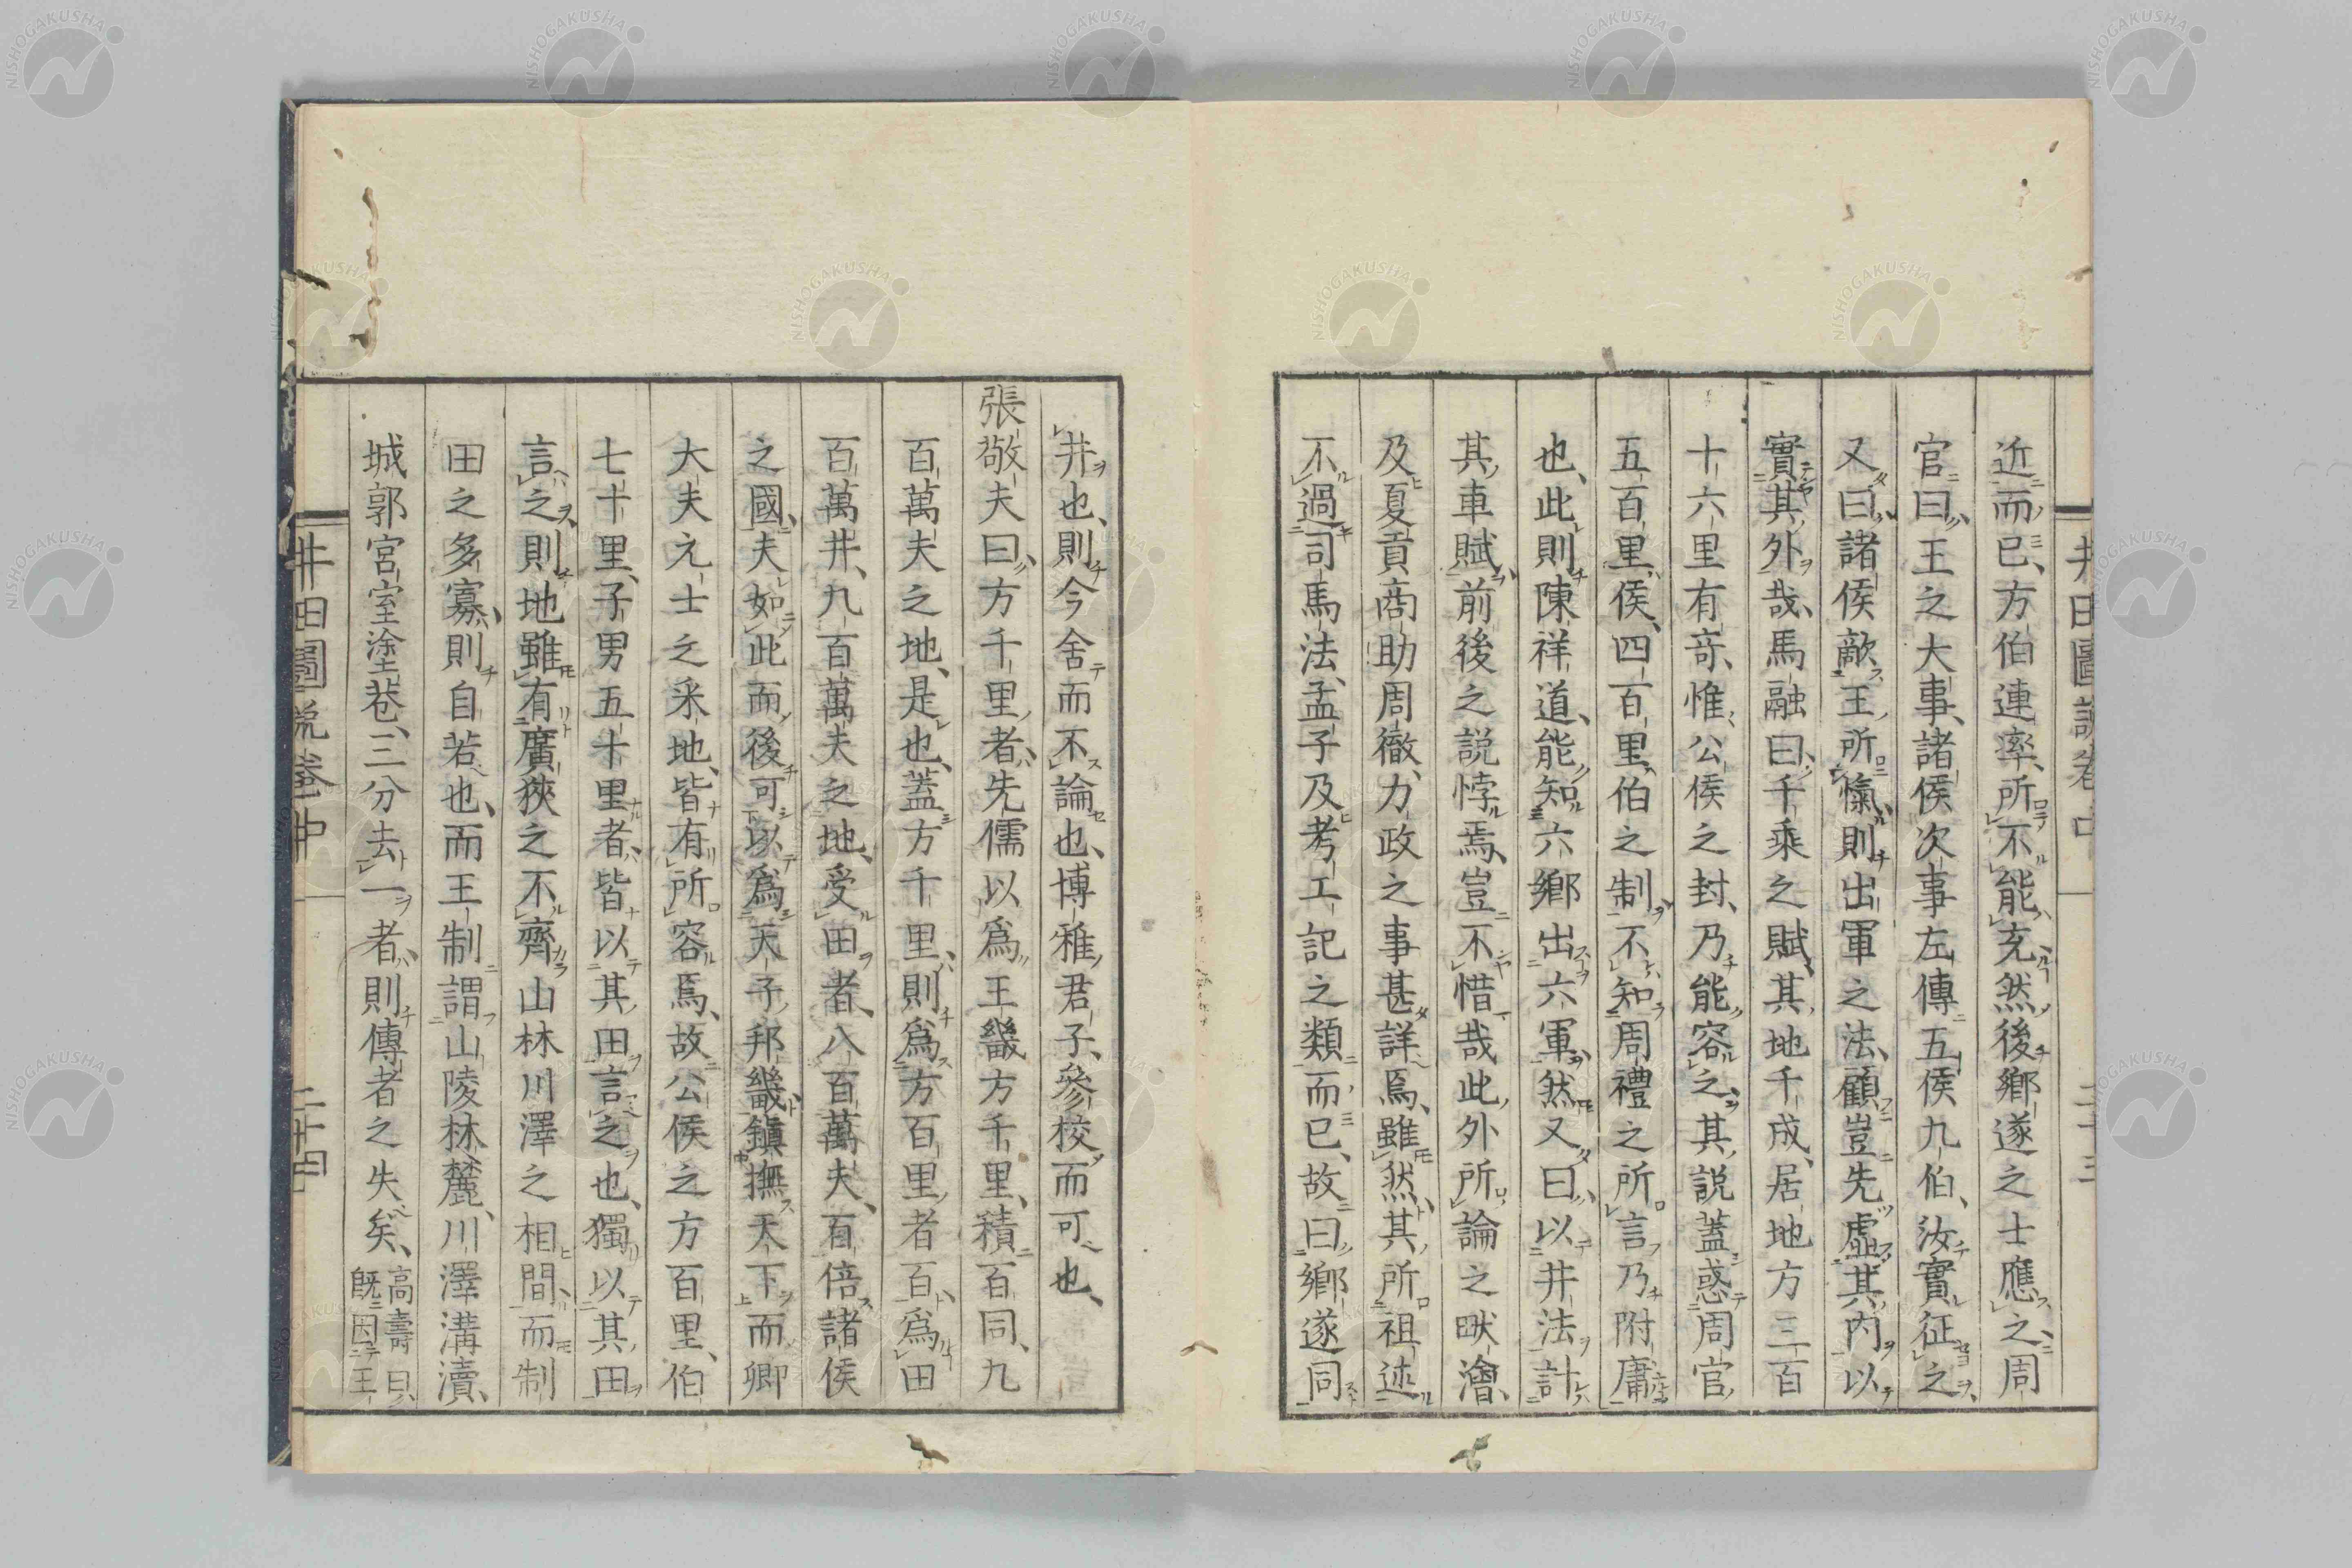 近而已、方伯連率、所不能充、然後鄉遂之士應之、周
官曰、王之大事、諸侯次事、左傳、五侯九伯、汝實征之、
又曰、諸侯敵王所愾、則出軍之法、顧豈先虛其內、以
實其外哉、馬融曰、千乘之賦、其地千成、居地方三百
十六里有奇、惟公侯之封、乃能容之、其說蓋惑周官、
五百里侯、四百里、伯之制、不知周禮之所言乃附庸
也、此則陳祥道、能知六鄉出六軍、然又曰、以井法計
其車賦、前後之說悖焉、豈不惜哉、此外所論之畎澮、
及夏貢商助周徹、力政之事甚詳焉、雖然、其所祖述
不過司馬法、孟子及考工記之類而已、故曰鄉遂同
井也、則今舍而不論也、博雅君子、參校而可也、
張敬夫曰、方千里者、先儒以爲王畿方千里、積百同、九
百萬夫之地、是也、蓋方千里、則爲方百里者百、爲田
百萬井、九百萬夫之地、受田者、八百萬夫、百倍諸侯
之國、夫如此而後可以爲天子邦畿、鎭撫天下而卿
大夫元士之采地、皆有所容焉、故公侯之方百里、伯
七十里、子男五十里者、皆以其田言之也、獨以其田
言之、則地雖有廣狹之不齊、山林川澤之相間、而制
田之多寡、則自若也、而王制謂山陵林麓、川澤溝瀆、
城郭宮室塗巷、三分去一者、則傳者之失矣、高壽曰、
既因王
井田圖說卷中 二十四